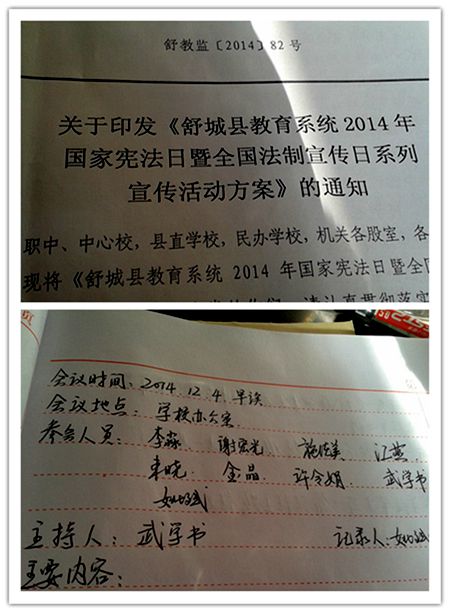 舒教监〔2014〕82号
关于印发《舒城县教育系统2014年
国家宪法日暨全国法制宣传日系列
宣传活动方案》的通知
职中、中心校，县直学校，民办学校，机关各股室，各
现将《舒城县教育系统 2014 年国家宪法日暨全国
请认真贯彻落实
会议时间：2014.12.4.早读
会议地点：学校办公室
参会人员：李淼 谢宏光 江燕
金晶 许令娟 武学书
主持人：武学书 记录人：
主要内容：